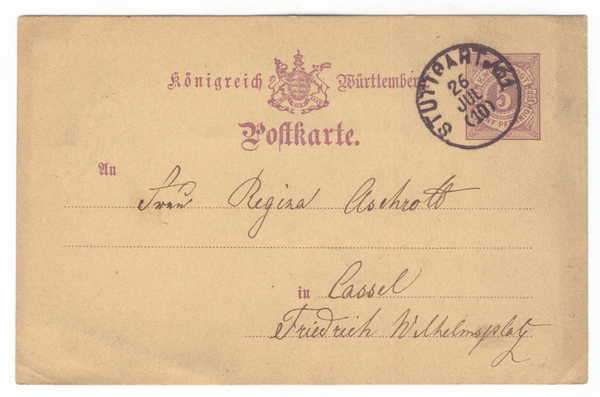 Königreich Württemberg
STUTTGART No1
26
JUL
(10)
5
Postkarte.
An
Frau Regina Aschrott
in Cassel
Friedrich Wilhelmsplatz